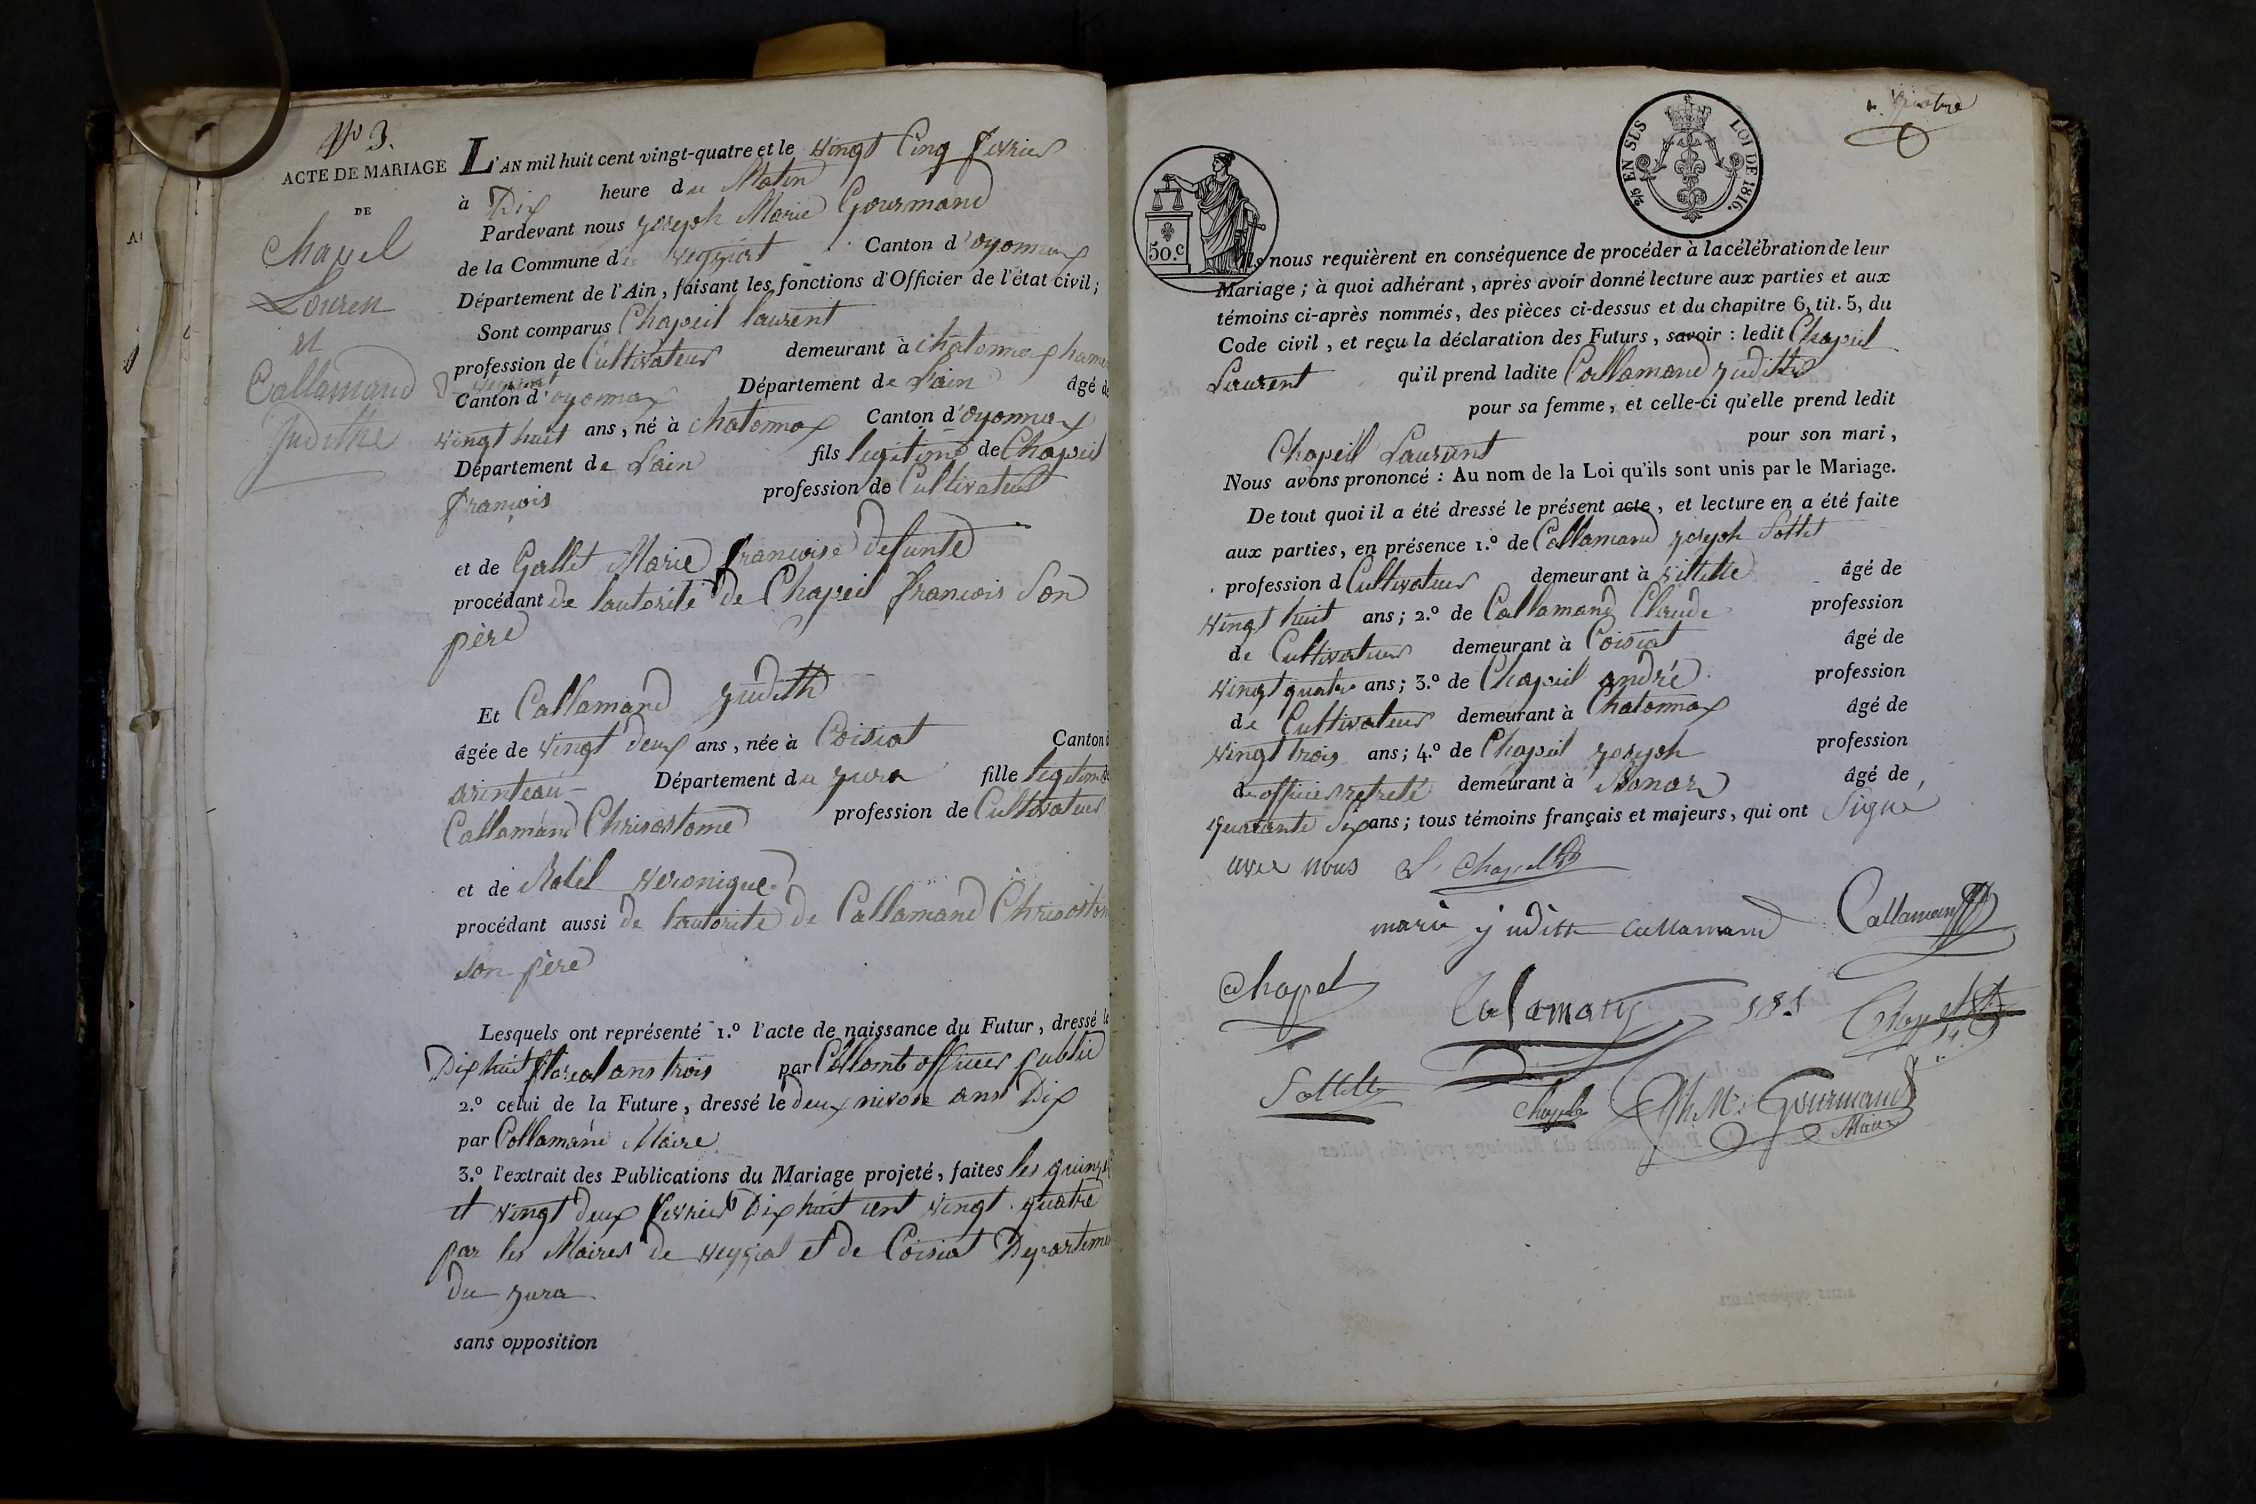 N° 3.
ACTE DE MARIAGE
DE
Chapel
Louren
et
Callamand
Judithe
L'AN mil huit cent vingt-quatre et le vingt Cinq fevrier
à Dix heure du Matin
Pardevant nous joseph Marie Gourmand
de la Commune de veyziat Canton d'oyonnax
Département de l'Ain, faisant les fonctions d'Officier de l'état civil;
Sont comparus Chapeil laurent
profession de Cultivateur demeurant à chatonnax hameau
Canton d'oyonnax Département de Lain âgé de
vingt huit ans, né à chatonnax Canton d'oyonnax
Département de Lain fils legitime de Chapeil
françois profession de Cultivateur
et de Gallet Marie francoise defunte
procédant de lautorité de Chapeil francois Son
père
Et Callamand judith
âgée de vingt deux ans, née à Coisiat Canton d
arinteau Département du jura fille legitime de
Callamand Chrisostome profession de Cultivateur
et de Veronique
procédant aussi de lautorité de Callamand Chrisostome
son père
Lesquels ont représenté 1.° l'acte de naissance du Futur, dressé le
Dix huit floreal ans trois par officier public
2.° celui de la Future, dressé le deux nivose ans Dix
par Collamand Maire
3.° l'extrait des Publications du Mariage projeté, faites les quinze
et vingt deux fevrier Dix huit cent vingt quatre
par les Maires de veyziat et de Coisiat Departement
du jura
sans opposition
50.c
5/10 EN SUS
LOI DE 1816.
Ils nous requièrent en conséquence de procéder à la célébration de leur
Mariage; à quoi adhérant, après avoir donné lecture aux parties et aux
témoins ci-après nommés, des pièces ci-dessus et du chapitre 6, tit. 5, du
Code civil, et reçu la déclaration des Futurs, savoir: ledit Chapeil
Laurent qu'il prend ladite Callamand judithe
pour sa femme, et celle-ci qu'elle prend ledit
Chapeil Laurent pour son mari,
Nous avons prononcé: Au nom de la Loi qu'ils sont unis par le Mariage.
De tout quoi il a été dressé le présent acte, et lecture en a été faite
aux parties, en présence 1.° de Callamand joseph Sottet
profession d Cultivateur demeurant à villette âgé de
vingt huit ans; 2.° de Callamand Claude profession
de Cultivateur demeurant à Coisiat âgé de
vingt quatre ans; 3.° de Chapeil andré profession
de Cultivateur demeurant à Chatonnax âgé de
vingt trois ans; 4.° de Chapeil joseph profession
de officier retreté demeurant à âgé de
quarante Six ans; tous témoins français et majeurs, qui ont Signé
avec nous L. Chapel
marie judith callamand Callamand
a chapel Calamand Chapel
Sottet Chapel Jph Mie Gourmand
Maire